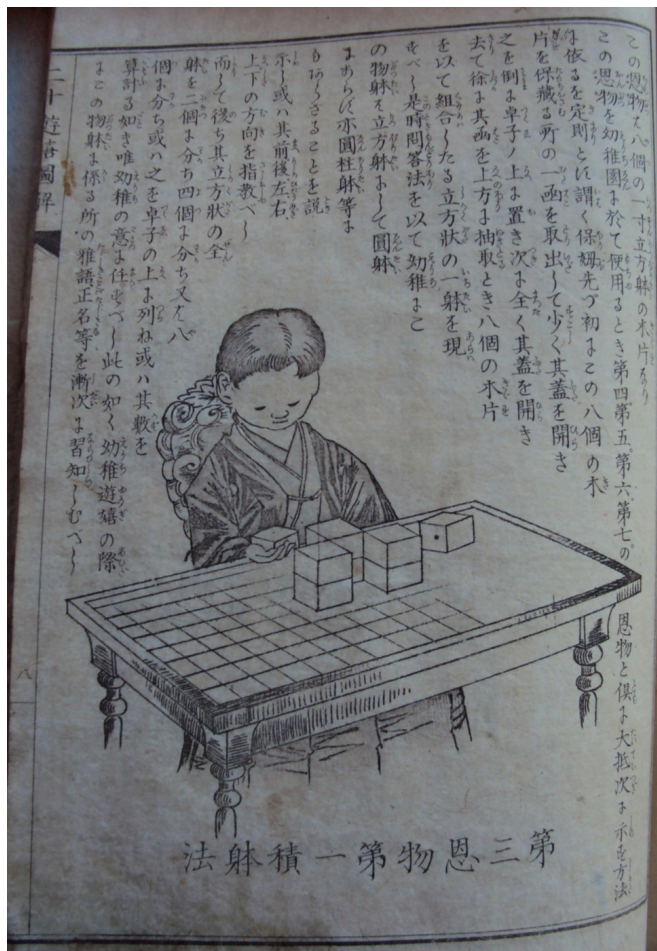 この恩物ハ八個の一寸立方躰の木片なり
この恩物を幼稚園に於て使用するとき第四、第五、第六、第七の恩物と倶に大抵次に示す方法
に依るを定則とす謂く保姆先づ初にこの八個の木
片を保藏する所の一函を取出して少く其蓋を開き
之を倒に卓子ノ上に置き次に全く其蓋を開き
去て徐に其函を上方に抽取とき八個の木片
を以て組合したる立方状の一躰を現
すべし是時問答法を以て幼稚にこ
の物躰ハ立方躰にして圓躰
にあらず亦圓柱躰等に
もあらざることを説
示し或ハ其前後左右
上下の方向を指教べし
而して後ち其立方状の全
躰を二個に分ち四個に分ち又ハ八
個に分ち或ハ之を卓子の上に列ね或ハ其数を
算計る如き唯幼稚の意に任すべし此の如く幼稚遊嬉の際
にこの物躰に係る所の雅語正名等を漸次に習知しむべし
二十遊嬉圖解
八
第三恩物第一積躰法